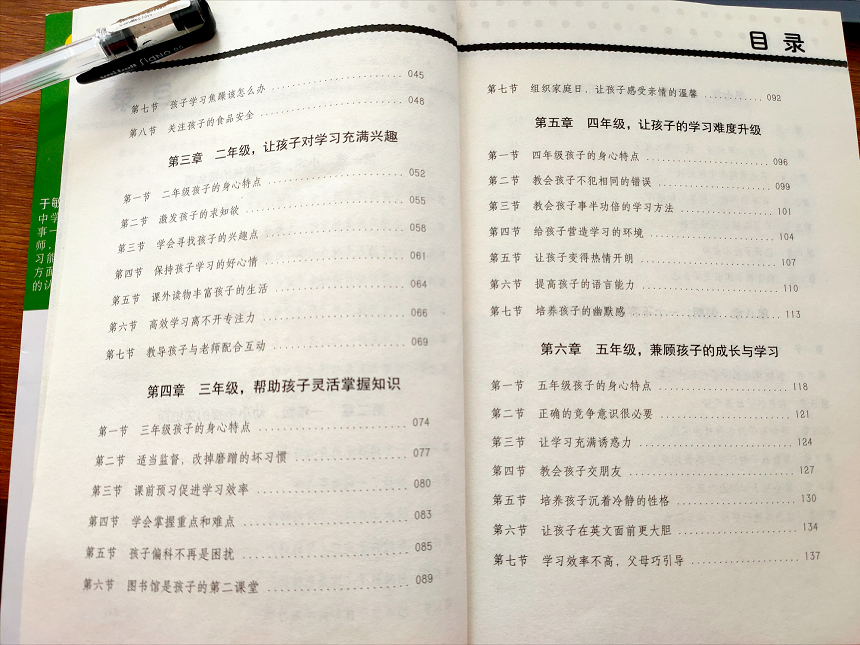 第七节 孩子学习焦躁该怎么办 045
第八节 关注孩子的食品安全 048
第三章 二年级，让孩子对学习充满兴趣
第一节 二年级孩子的身心特点 052
第二节 激发孩子的求知欲 055
第三节 学会寻找孩子的兴趣点 058
第四节 保持孩子学习的好心情 061
第五节 课外读物丰富孩子的生活 064
第六节 高效学习离不开专注力 066
第七节 教导孩子与老师配合互动 069
第四章 三年级，帮助孩子灵活掌握知识
第一节 三年级孩子的身心特点 074
第二节 适当监督，改掉磨蹭的坏习惯 077
第三节 课前预习促进学习效率 080
第四节 学会掌握重点和难点 083
第五节 孩子偏科不再是困扰 085
第六节 图书馆是孩子的第二课堂 089
目录
第七节 组织家庭日，让孩子感受亲情的温馨 092
第五章 四年级，让孩子的学习难度升级
第一节 四年级孩子的身心特点 096
第二节 教会孩子不犯相同的错误 099
第三节 教会孩子事半功倍的学习方法 101
第四节 给孩子营造学习的环境 104
第五节 让孩子变得热情开朗 107
第六节 提高孩子的语言能力 110
第七节 培养孩子的幽默感 113
第六章 五年级，兼顾孩子的成长与学习
第一节 五年级孩子的身心特点 118
第二节 正确的竞争意识很必要 121
第三节 让学习充满诱惑力 124
第四节 教会孩子交朋友 127
第五节 培养孩子沉着冷静的性格 130
第六节 让孩子在英文面前更大胆 134
第七节 学习效率不高，父母巧引导 137
于敏
中学
事一
师，
习能
方面
的认